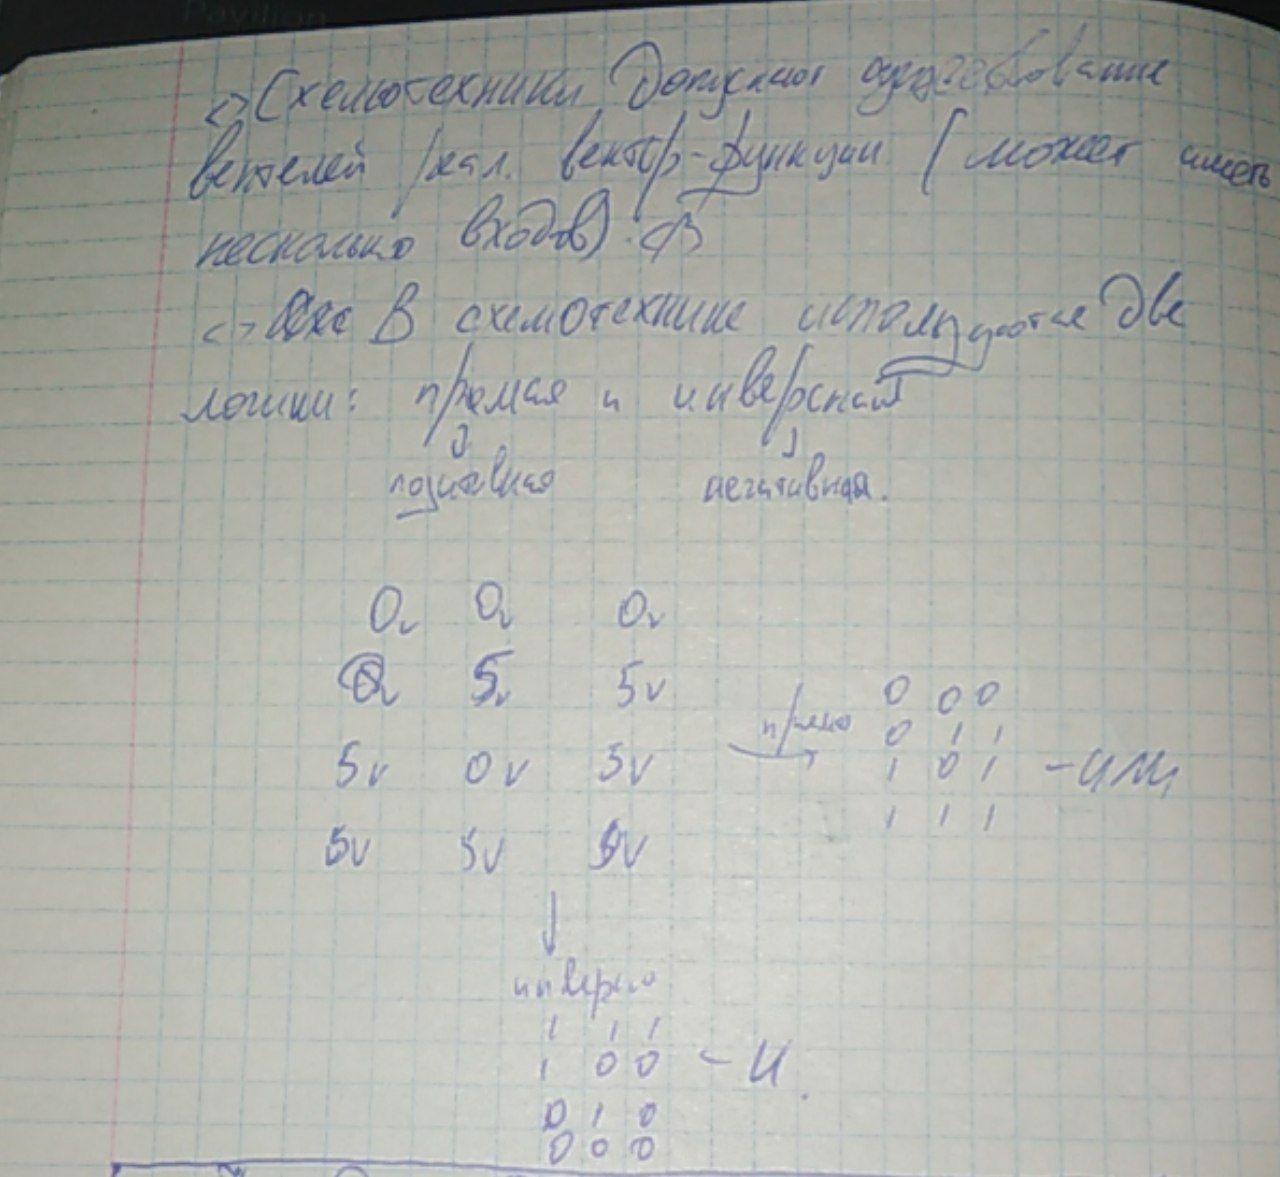 Pavilion
<> Схемотехники допускают существование
вентелей / кал. вектор-функции (может иметь
несколько входов).
<> В схемотехнике используются две
логики: прямая и инверсная
позитивная негативная.
0v 0v 0v
0v 5v 5v
5v 0v 5v
5v 5v 5v
прямо
0 0 0
0 1 1
1 0 1 - ИЛИ
1 1 1
инверсно
1 1 1
1 0 0 - И.
0 1 0
0 0 0